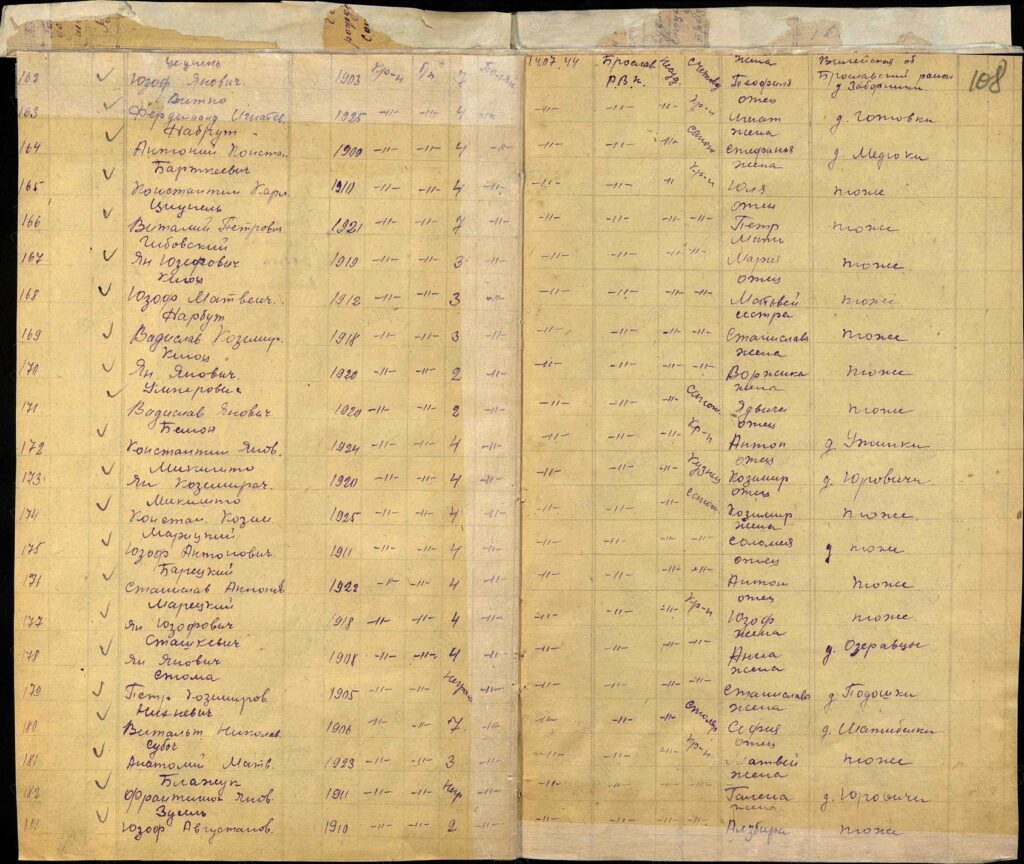 108
162 Цецинь Юзоф Янович. 1903 кр-н б/п 7 Поляк 14.07.44 Брослав Р.В.К. негод. жена Теофиля Вилейская об Брославский район д Заборники
163 Витко Фердинанд Игнатев. 1925 -"- -"- 4 -"- -"- -"- -"- кр-н отец Игнат д. Готовки
164 Набрут Антоний Конста. 1900 -"- -"- 4 -"- -"- -"- -"- сапож жена Стефанья д. Медюки
165 Барткевич Константин Карл 1910 -"- -"- 4 -"- -"- -"- -"- кр-н жена Юля тоже
166 Цицпель Виталий Петрович 1921 -"- -"- 7 -"- -"- -"- -"- -"- отец Петр тоже
167 Гибовский Ян Юзефович 1919 -"- -"- 3 -"- -"- -"- -"- -"- Мать Мария тоже.
168 Юзоф Матвеич. 1912 -"- -"- 3 -"- -"- -"- -"- -"- отец Матвей тоже.
169 Нарбут Вадислав Козимир. 1918 -"- -"- 3 -"- -"- -"- -"- -"- сестра Станислава тоже
170 Ян Янович. 1920 -"- -"- 2 -"- -"- -"- -"- -"- жена тоже
171 Умперович Вадислав Янович 1920 -"- -"- 2 -"- -"- -"- -"- сапож. жена Ядвига тоже
172 Константин Янов. 1924 -"- -"- 4 -"- -"- -"- -"- кр-н отец Антон д.
173 Микишто Ян Коземирач. 1920 -"- -"- 4 -"- -"- -"- -"- кузнец отец Козимир д. Юровичи
174 Микишто Констан. Козим 1925 -"- -"- 4 -"- -"- -"- -"- сапож. отец Козимир тоже
175 Марецкий Юзоф Антонович. 1911 -"- -"- 4 -"- -"- -"- -"- -"- жена Соломея д тоже
176 Барецкий Станислав Антонов 1922 -"- -"- 4 -"- -"- -"- -"- -"- отец Антон тоже
177 Марецкий Ян Юзофович 1918 -"- -"- 4 -"- -"- -"- -"- кр-н отец Юзоф тоже.
178 Сташкевич Ян Янович 1908 -"- -"- 4 -"- -"- -"- -"- -"- жена Анна д. Озеравцы
179 Стома Петр Козимиров. 1905 -"- -"- Неграм -"- -"- -"- -"- -"- жена Станислава д. Подошки
180 Нихневич Витальт Николаев 1906 -"- -"- 7 -"- -"- -"- -"- столяр жена София д.
181 Субоч Анатолий Матв. 1923 -"- -"- 3 -"- -"- -"- -"- кр-н отец Матвей тоже
182 Блажук Франтишек Янов. 1911 -"- -"- Негр -"- -"- -"- -"- -"- жена Галена д. Юровичи
183 Юзоф Августанов. 1910 -"- -"- 2 -"- -"- -"- -"- -"- жена Алзбира тоже